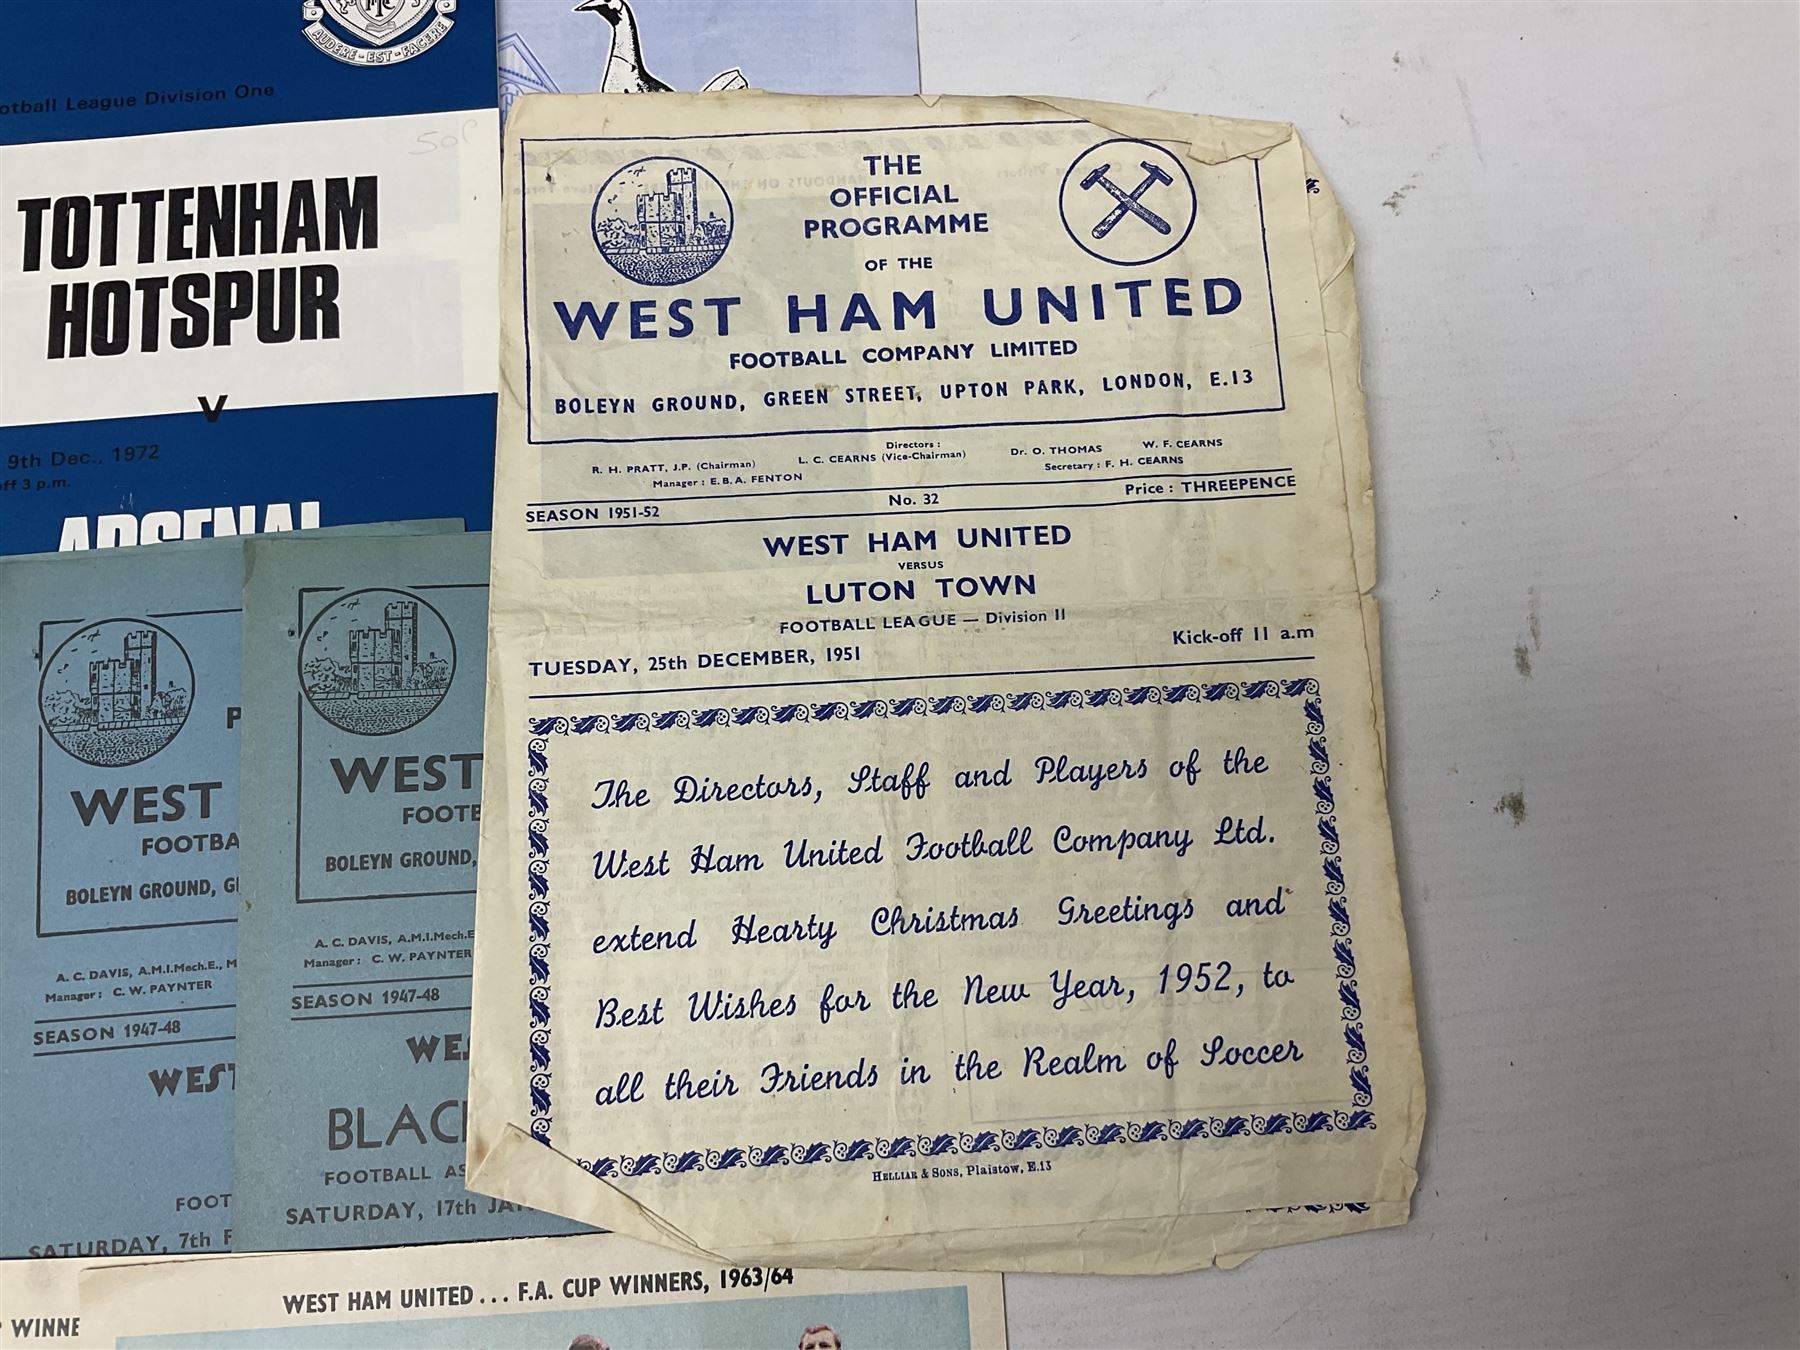 AUDERE · EST · FACERE
Football League Division One
50p
TOTTENHAM
HOTSPUR
v
9th Dec., 1972
off 3 p.m.
ARSENAL
THE
OFFICIAL
PROGRAMME
OF THE
WEST HAM UNITED
FOOTBALL COMPANY LIMITED
BOLEYN GROUND, GREEN STREET, UPTON PARK, LONDON, E.13
Directors :
R. H. PRATT, J.P. (Chairman) L. C. CEARNS (Vice-Chairman) Dr. O. THOMAS W. F. CEARNS
Manager : E. B. A. FENTON Secretary : F. H. CEARNS
SEASON 1951-52 No. 32 Price : THREEPENCE
WEST HAM UNITED
VERSUS
LUTON TOWN
FOOTBALL LEAGUE — Division II
TUESDAY, 25th DECEMBER, 1951 Kick-off 11 a.m
The Directors, Staff and Players of the
West Ham United Football Company Ltd.
extend Hearty Christmas Greetings and
Best Wishes for the New Year, 1952, to
all their Friends in the Realm of Soccer
HELLIAR & SONS, Plaistow, E.13
P
WEST
FOOTBA
BOLEYN GROUND, G
A. C. DAVIS, A.M.I.Mech.E., M
Manager : C. W. PAYNTER
SEASON 1947-48
WEST
FOOT
SATURDAY, 7th F
WEST
FOOTB
BOLEYN GROUND,
A. C. DAVIS, A.M.I.Mech.E
Manager : C. W. PAYNTER
SEASON 1947-48
WES
BLAC
FOOTBALL AS
SATURDAY, 17th JAN
WINNE
WEST HAM UNITED . . . F.A. CUP WINNERS, 1963/64